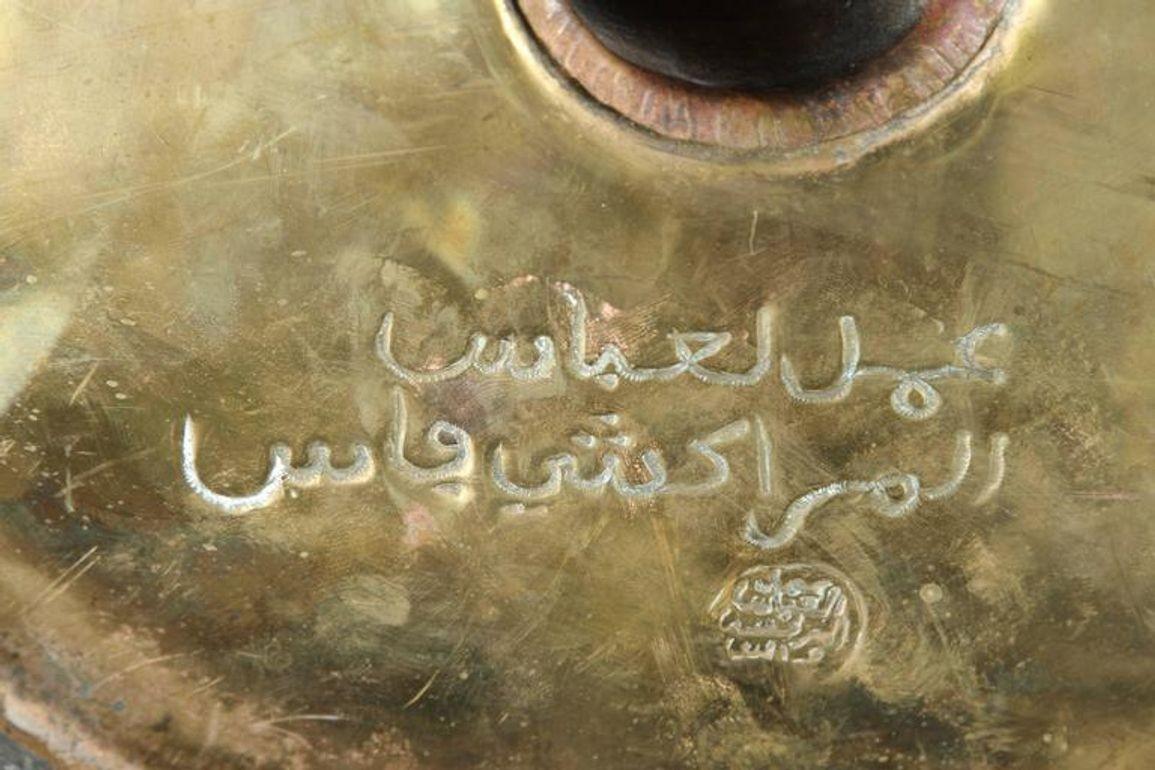 عمل لعباس
المراكشي ڢاس